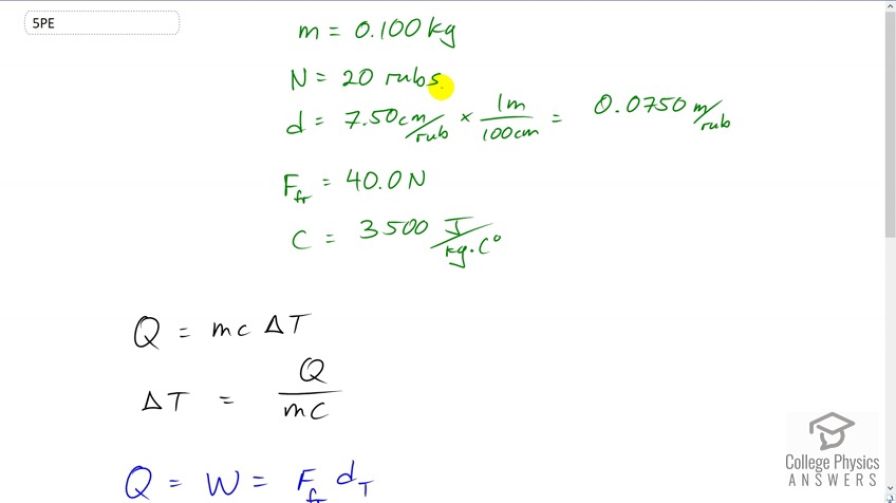 5PE
m = 0.100 kg
N = 20 rubs
d = 7.50 cm/rub × 1m/100cm = 0.0750 m/rub
F_fr = 40.0 N
C = 3500 J/kg·C°
Q = mc ΔT
ΔT = Q/mc
Q = W = F_fr d_T
College Physics
ANSWERS